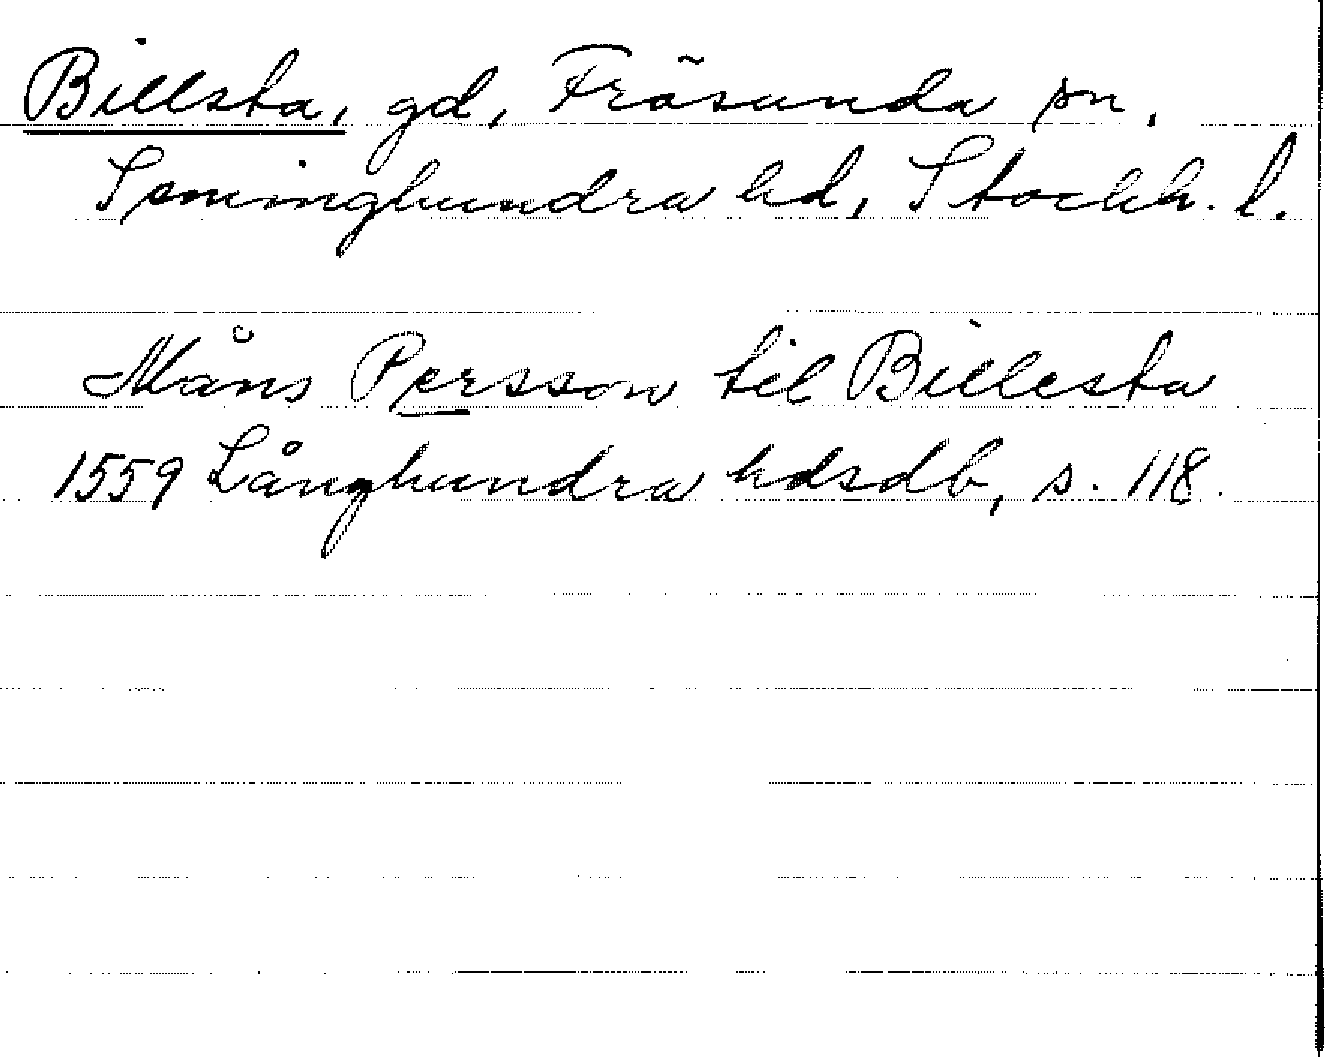 Billsta, gd, Frösunda sn,
Seminghundra hd, Stockh. l.
Måns Persson til Billesta
1559 Långhundra hdsdb, s. 118.